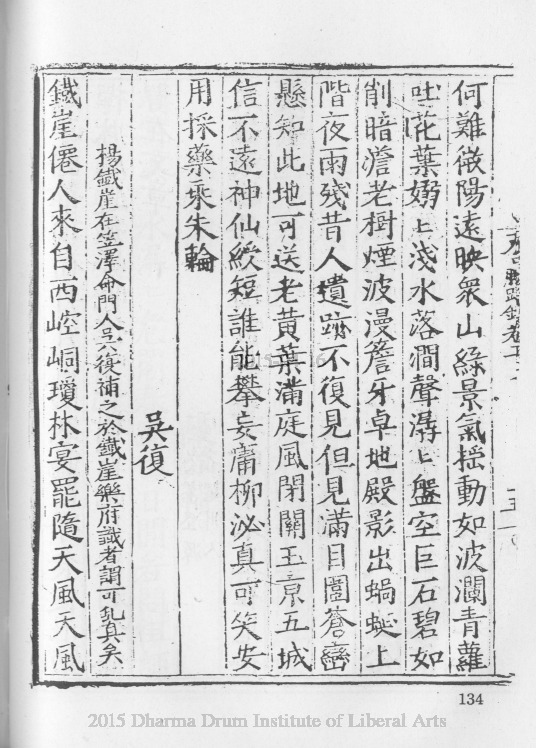 何難微陽遠映衆山綠景氣揺動如波瀾青蘿
吐花葉嫋〻淺水落澗聲潺〻盤空巨石碧如
削暗澹老樹煙波漫簷牙卓地殿影出蝸蜒上
階夜雨殘昔人遺跡不復見但見滿目圍蒼巒
懸知此地可送老黄葉滿庭風閉關玉京五城
信不遠神仙綆短誰能攀妄庸柳泌真可笑安
用採藥乘朱輪
吳復
楊鐵崖在笠澤命門人吳復補之於鐵崖樂府識者謂可乱真矣
鐵崖僊人來自西崆峒瓊林宴罷隨天風天風
134
2015 Dharma Drum Institute of Liberal Arts